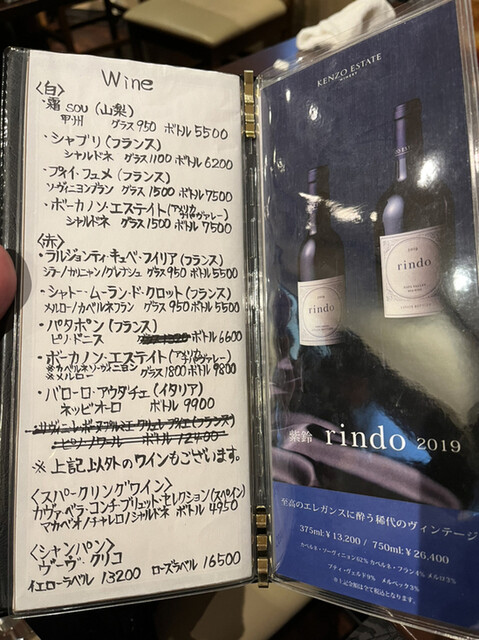 Wine
〈白〉
・霜 SOU (山梨)
甲州 グラス 950 ボトル 5500
・シャブリ (フランス)
シャルドネ グラス 1100 ボトル 6200
・プイィ・フュメ (フランス)
ソヴィニヨンブラン グラス 1500 ボトル 7500
・ボーカノン・エステイト (アメリカ
シャルドネ グラス 1500 ボトル 7500
〈赤〉
・ラルジョンティ・キュベ・フイリア (フランス)
シラー/カリニャン/グルナシュ グラス 950 ボトル 5500
・シャトー・ムーラン・ド・クロット (フランス)
メルロー/カベルネフラン グラス 950 ボトル 5500
・パタポン (フランス)
ピノ・ドニス ボトル 6600
・ボーカノン・エステイト (アメリカ
※カベルネ・ソーヴィニヨン グラス 1800 ボトル 9800
※メルロー
・バローロ・アウダチェ (イタリア)
ネッビオーロ ボトル 9900
ピノ・ノワール ボトル 12400
※上記以外のワインもございます。
〈スパークリングワイン〉
カヴァ・ベラ・コンチ ブリュット・セレクション (スペイン)
マカベオ/チャレロ/シャルドネ ボトル 4950
〈シャンパン〉
ヴーヴ・クリコ
イエローラベル 13200 ローズラベル 16500
KENZO ESTATE
WINERY
rindo
rindo
紫鈴 rindo 2019
至高のエレガンスに酔う稀代のヴィンテージ
375ml:¥13,200 / 750ml:¥26,400
カベルネ・ソーヴィニヨン62% カベルネ・フラン4% メルロ3%
プティ・ヴェルド9% マルベック3%
※上記金額は全て税込となります。